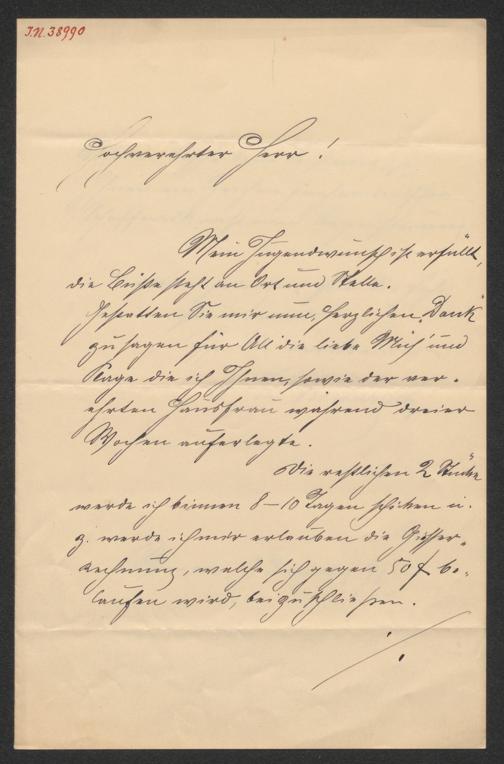 J.N. 38990
Hochverehrter Herr!
Mein Jugendwunsch ist erfüllt,
die Büste steht an Ort und Stelle.
Gestatten Sie mir nun, herzlichen „Dank"
zu sagen für All die liebe Müh' und
Plage die ich Ihnen, sowie der ver-
ehrten Hausfrau während dreier
Wochen auferlegte.
Die restlichen 2 Stücke
werde ich binnen 8–10 Tagen schicken u.
z. werde ich mir erlauben die Gießer-
rechnung, welche sich gegen 50 f be-
laufen wird, beizuschließen.
./.